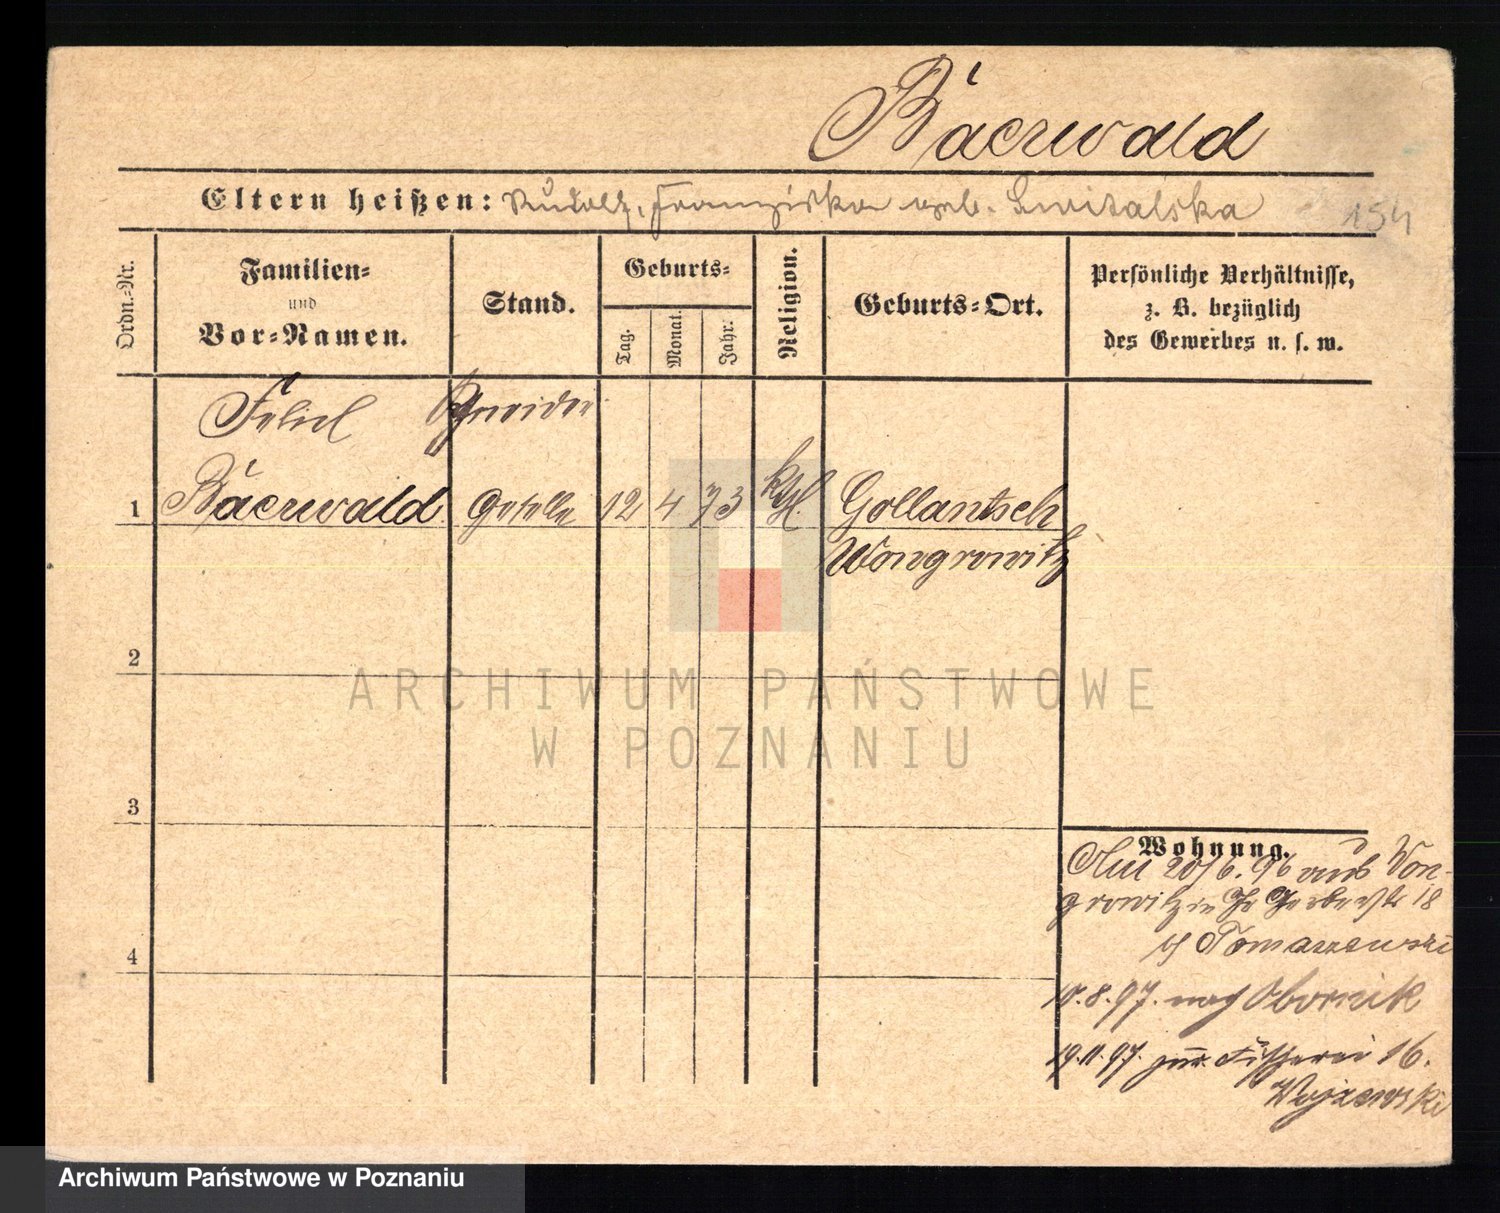 Bäerwald
Eltern heißen: Rudolf, Franziska geb. Switalska
154
Ordn.-Nr.
Familien-
und
Vor-Namen.
Stand.
Geburts-
Tag.
Monat.
Jahr.
Religion.
Geburts-Ort.
Persönliche Verhältnisse,
z. B. bezüglich
des Gewerbes u. s. w.
Schneider
1 Bäerwald Geselle 12 4 73 kth. Gollantsch
Wongrowitz
2
3
4
Wohnung.
Am 20/6.96 aus Won-
growitz 18
Tomaszewski
10.8.97. nach Obornik
19.11.97. zur. Fischerei 16.
ARCHIWUM PAŃSTWOWE
W POZNANIU
Archiwum Państwowe w Poznaniu